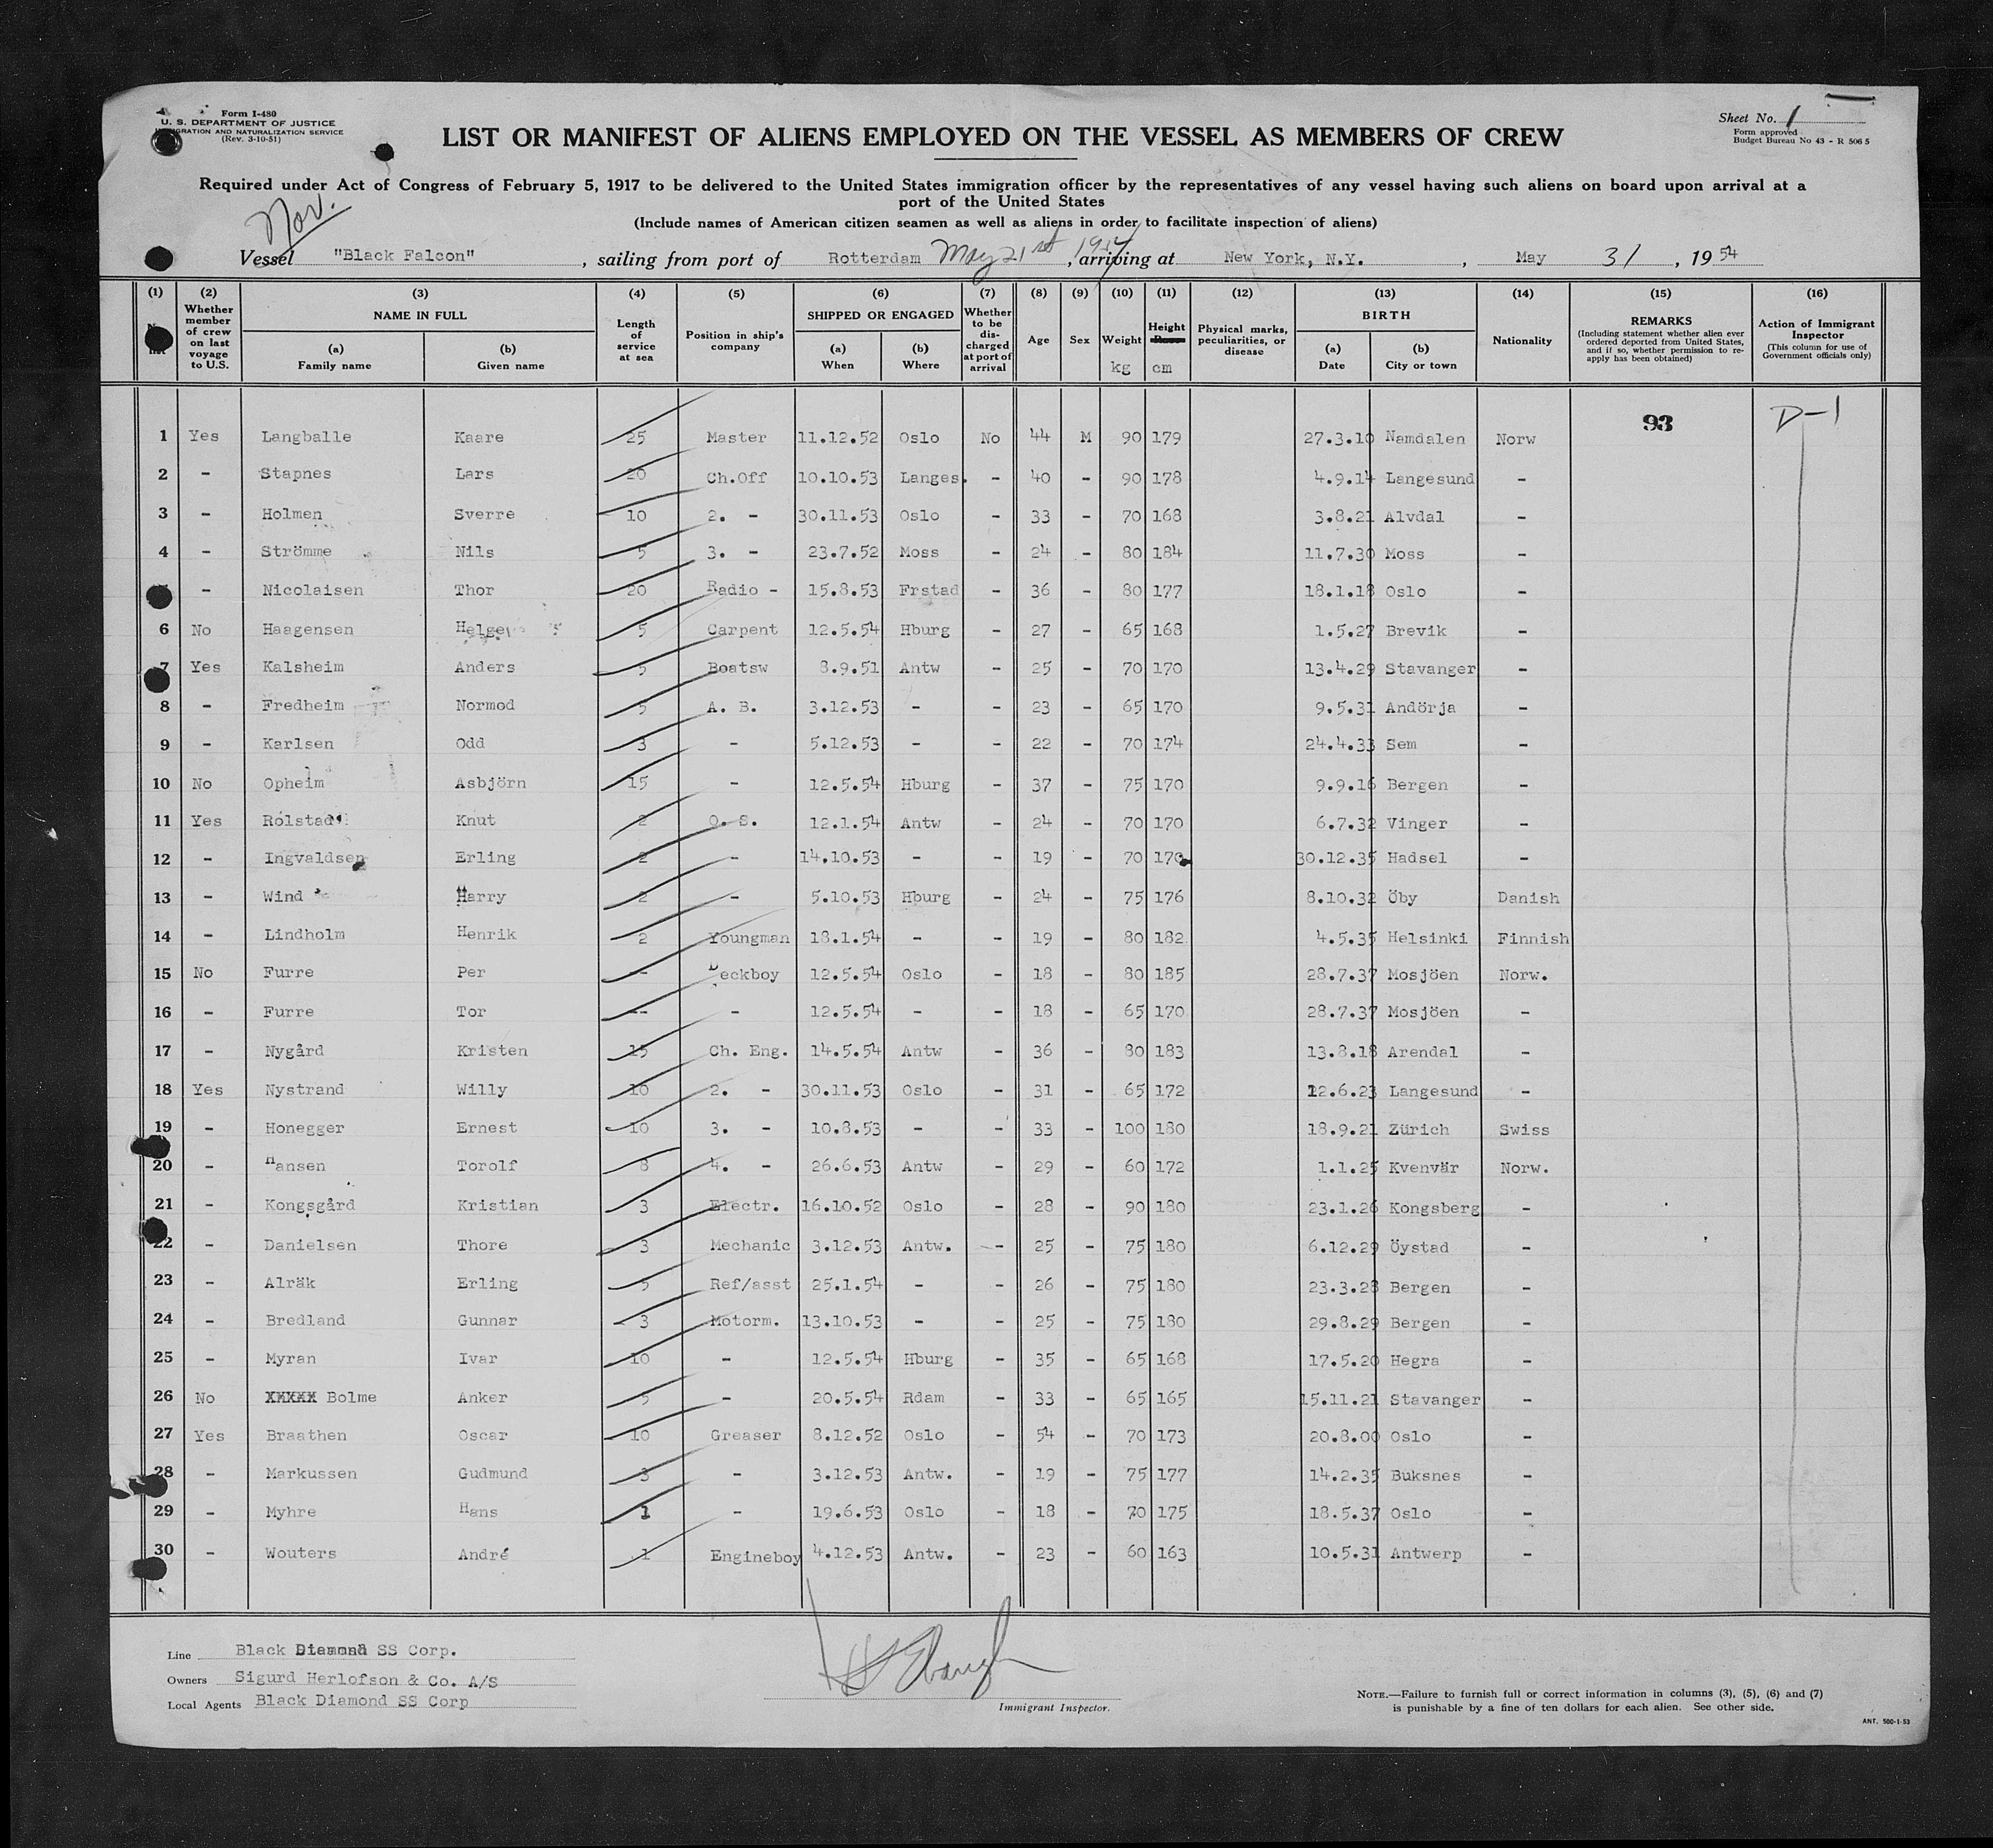 Form I-480
U. S. DEPARTMENT OF JUSTICE
IMMIGRATION AND NATURALIZATION SERVICE
(Rev. 3-10-51)
Sheet No. 1
Form approved
Budget Bureau No 43 - R 506 5
LIST OR MANIFEST OF ALIENS EMPLOYED ON THE VESSEL AS MEMBERS OF CREW
Required under Act of Congress of February 5, 1917 to be delivered to the United States immigration officer by the representatives of any vessel having such aliens on board upon arrival at a
port of the United States
(Include names of American citizen seamen as well as aliens in order to facilitate inspection of aliens)
Nor.
Vessel "Black Falcon", sailing from port of Rotterdam May 21st, 1954, arriving at New York, N.Y., May 31, 1954
(1) (2) Whether member of crew on last voyage to U.S. (3) NAME IN FULL (a) Family name (b) Given name (4) Length of service at sea (5) Position in ship's company (6) SHIPPED OR ENGAGED (a) When (b) Where (7) Whether to be discharged at port of arrival (8) Age (9) Sex (10) Weight kg (11) Height cm (12) Physical marks, peculiarities, or disease (13) BIRTH (a) Date (b) City or town (14) Nationality (15) REMARKS (Including statement whether alien ever ordered deported from United States, and if so, whether permission to reapply has been obtained) (16) Action of Immigrant Inspector (This column for use of Government officials only)
93 D-1
1 Yes Langballe Kaare 25 Master 11.12.52 Oslo No 44 M 90 179 27.3.10 Namdalen Norw
2 - Stapnes Lars 20 Ch.Off 10.10.53 Langes. - 40 - 90 178 4.9.14 Langesund -
3 - Holmen Sverre 10 2. - 30.11.53 Oslo - 33 - 70 168 3.8.21 Alvdal -
4 - Strömme Nils 5 3. - 23.7.52 Moss - 24 - 80 184 11.7.30 Moss -
- Nicolaisen Thor 20 Radio - 15.8.53 Frstad - 36 - 80 177 18.1.18 Oslo -
6 No Haagensen Helge 5 Carpent 12.5.54 Hburg - 27 - 65 168 1.5.27 Brevik -
7 Yes Kalsheim Anders 5 Boatsw 8.9.51 Antw - 25 - 70 170 13.4.29 Stavanger -
8 - Fredheim Normod 5 A. B. 3.12.53 - - 23 - 65 170 9.5.31 Andörja -
9 - Karlsen Odd 3 - 5.12.53 - - 22 - 70 174 24.4.33 Sem -
10 No Opheim Asbjörn 15 - 12.5.54 Hburg - 37 - 75 170 9.9.16 Bergen -
11 Yes Rolstad Knut 2 O. S. 12.1.54 Antw - 24 - 70 170 6.7.32 Vinger -
12 - Ingvaldsen Erling 2 - 14.10.53 - - 19 - 70 170 30.12.35 Hadsel -
13 - Wind Harry 2 - 5.10.53 Hburg - 24 - 75 176 8.10.32 Öby Danish
14 - Lindholm Henrik 2 Youngman 18.1.54 - - 19 - 80 182 4.5.35 Helsinki Finnish
15 No Furre Per -- Deckboy 12.5.54 Oslo - 18 - 80 185 28.7.37 Mosjöen Norw.
16 - Furre Tor -- - 12.5.54 - - 18 - 65 170 28.7.37 Mosjöen -
17 - Nygård Kristen 15 Ch. Eng. 14.5.54 Antw - 36 - 80 183 13.8.18 Arendal -
18 Yes Nystrand Willy 10 2. - 30.11.53 Oslo - 31 - 65 172 12.6.23 Langesund -
19 - Honegger Ernest 10 3. - 10.8.53 - - 33 - 100 180 18.9.21 Zürich Swiss
20 - Hansen Torolf 8 4. - 26.6.53 Antw - 29 - 60 172 1.1.25 Kvenvär Norw.
21 - Kongsgård Kristian 3 Electr. 16.10.52 Oslo - 28 - 90 180 23.1.26 Kongsberg -
22 - Danielsen Thore 3 Mechanic 3.12.53 Antw. - 25 - 75 180 6.12.29 Öystad -
23 - Alräk Erling 5 Ref/asst 25.1.54 - - 26 - 75 180 23.3.28 Bergen -
24 - Bredland Gunnar 3 Motorm. 13.10.53 - - 25 - 75 180 29.8.29 Bergen -
25 - Myran Ivar 10 - 12.5.54 Hburg - 35 - 65 168 17.5.20 Hegra -
26 No XXXXX Bolme Anker 5 - 20.5.54 Rdam - 33 - 65 165 15.11.21 Stavanger -
27 Yes Braathen Oscar 10 Greaser 8.12.52 Oslo - 54 - 70 173 20.8.00 Oslo -
28 - Markussen Gudmund 3 - 3.12.53 Antw. - 19 - 75 177 14.2.35 Buksnes -
29 - Myhre Hans 1 - 19.6.53 Oslo - 18 - 70 175 18.5.37 Oslo -
30 - Wouters André 1 Engineboy 4.12.53 Antw. - 23 - 60 163 10.5.31 Antwerp -
Line Black Diamond SS Corp.
Owners Sigurd Herlofson & Co. A/S
Local Agents Black Diamond SS Corp
Immigrant Inspector.
NOTE.—Failure to furnish full or correct information in columns (3), (5), (6) and (7)
is punishable by a fine of ten dollars for each alien. See other side.
ANT. 500-1-53